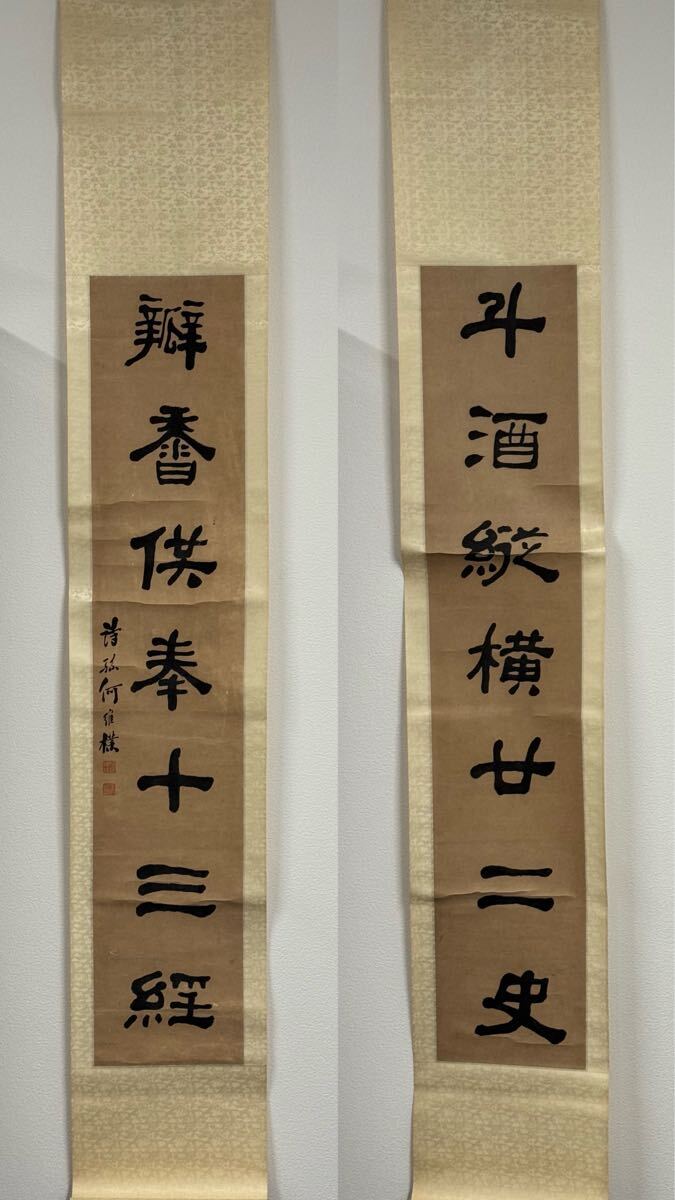 斗酒縱橫廿二史
瓣香供奉十三經
詩孫何維樸